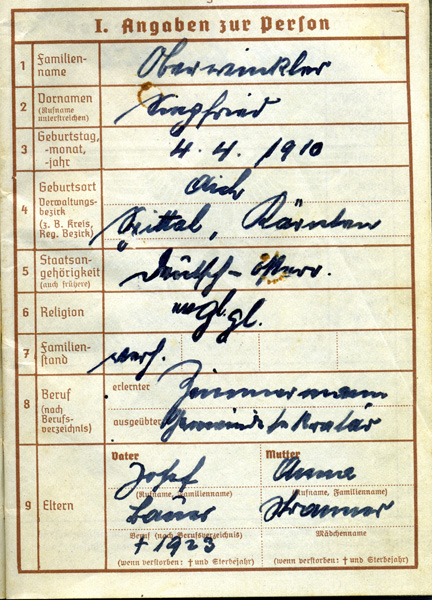 I. Angaben zur Person
1 Familien-
name
Oberwinkler
2 Vornamen
(Rufname
unterstreichen)
Siegfried
3 Geburtstag,
-monat,
-jahr
4. 4. 1910
4 Geburtsort
Verwaltungs-
bezirk
(z. B. Kreis,
Reg. Bezirk)
Aich
Spittal, Kärnten
5 Staatsan-
gehörigkeit
(auch frühere)
Deutsch-österr.
6 Religion
ggl.
7 Familien-
stand
verh.
8 Beruf
(nach
Berufs-
verzeichnis)
erlernter
Zimmermann
ausgeübter
Gemeindesekretär
9 Eltern
Vater
Josef
(Rufname, Familienname)
Bauer
Beruf (nach Berufsverzeichnis)
† 1923
(wenn verstorben: † und Sterbejahr)
Mutter
Anna
(Rufname, Familienname)
Mädchenname
(wenn verstorben: † und Sterbejahr)